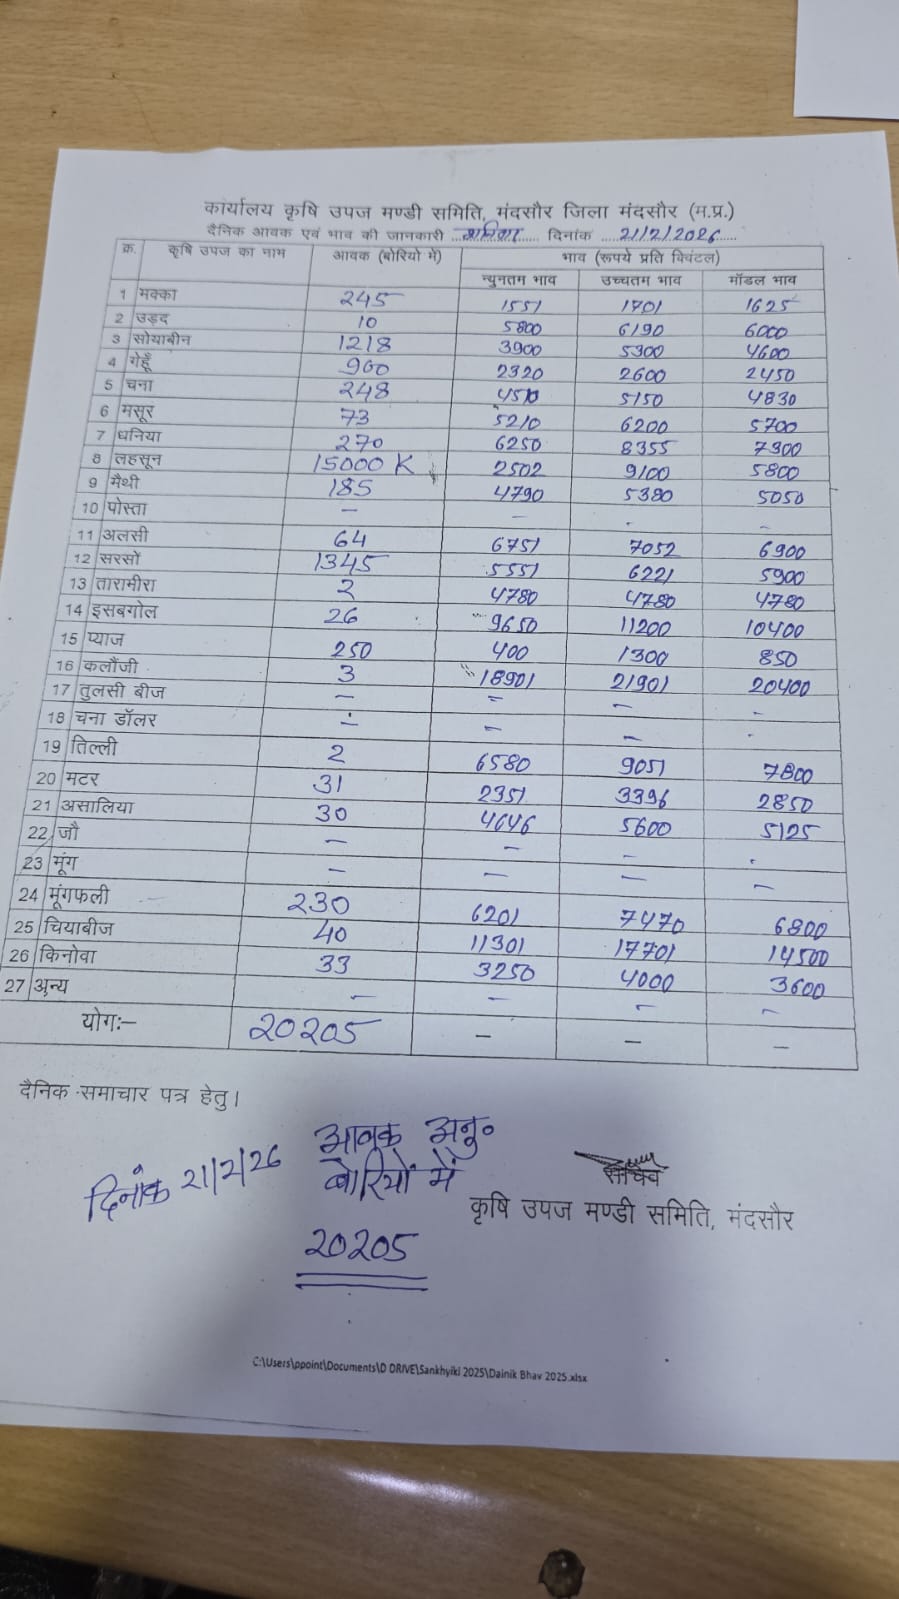 कार्यालय कृषि उपज मण्डी समिति, मंदसौर जिला मंदसौर (म.प्र.)
दैनिक आवक एवं भाव की जानकारी ...शनिवार... दिनांक ...21/2/2026...
क्र. कृषि उपज का नाम आवक (बोरियो में) भाव (रूपये प्रति क्विंटल)
न्युनतम भाव उच्चतम भाव मॉडल भाव
1 मक्का 245 1551 1701 1625
2 उड़द 10 5800 6190 6000
3 सोयाबीन 1218 3900 5300 4600
4 गेहूँ 960 2320 2600 2450
5 चना 248 4510 5150 4830
6 मसूर 73 5210 6200 5700
7 धनिया 270 6250 8355 7300
8 लहसून 15000 K 2502 9100 5800
9 मैथी 185 4790 5380 5050
10 पोस्ता – – - –
11 अलसी 64 6751 7052 6900
12 सरसों 1345 5551 6221 5900
13 तारामीरा 2 4780 4780 4780
14 इसबगोल 26 9650 11200 10400
15 प्याज 250 400 1300 850
16 कलौंजी 3 18901 21901 20400
17 तुलसी बीज – – – -
18 चना डॉलर – – – -
19 तिल्ली 2 6580 9051 7800
20 मटर 31 2351 3396 2850
21 असालिया 30 4646 5600 5125
22 जौ – – – -
23 मूंग – – – –
24 मूंगफली 230 6201 7470 6800
25 चियाबीज 40 11301 17701 14500
26 किनोवा 33 3250 4000 3600
27 अन्य – – – –
योगः– 20205 – – –
दैनिक समाचार पत्र हेतु।
दिनांक 21/2/26 आवक अनु॰
बोरियों में
20205
सचिव
कृषि उपज मण्डी समिति, मंदसौर
C:\Users\ppoint\Documents\D DRIVE\Sankhyiki 2025\Dainik Bhav 2025.xlsx